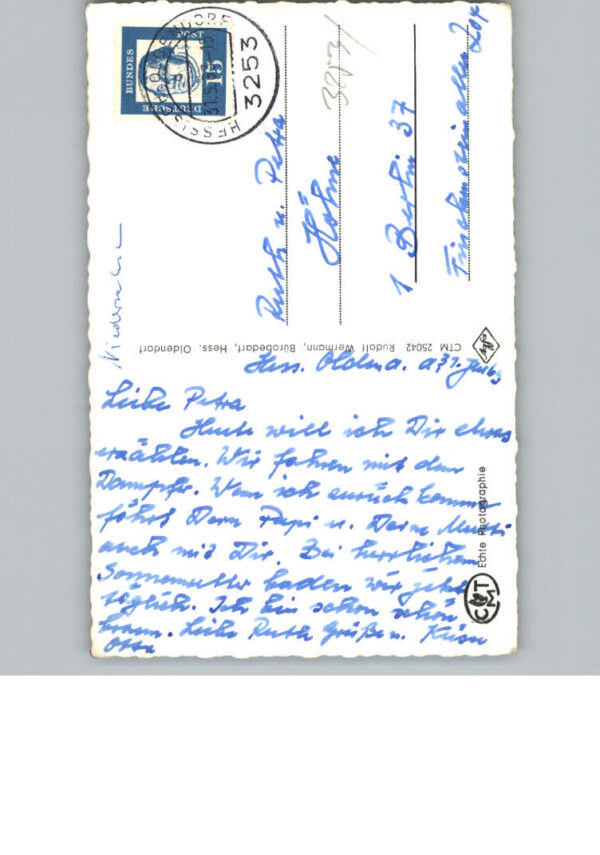 Hess. Oldend. d. 31. Juli 63
Liebe Petra
Heute will ich Dir etwas
erzählen. Wir fahren mit dem
Dampfer. Wenn ich zurück komme
fährt Dein Papi u. Deine Mutti
auch mit Dir. Bei herrlichem
Sonnenwetter baden wir jetzt
täglich. Ich bin schon schön
braun. Liebe Ruth Grüße u. Küsse
Ruth u. Petra
Höhne
1 Berlin 37
3253
BUNDES
POST
DEUTSCHE
15
HESSISCH OLDENDORF
3253
CTM 25042 Rudolf Wermann, Bürobedarf, Hess. Oldendorf
Agfa
Echte Photographie
CTM